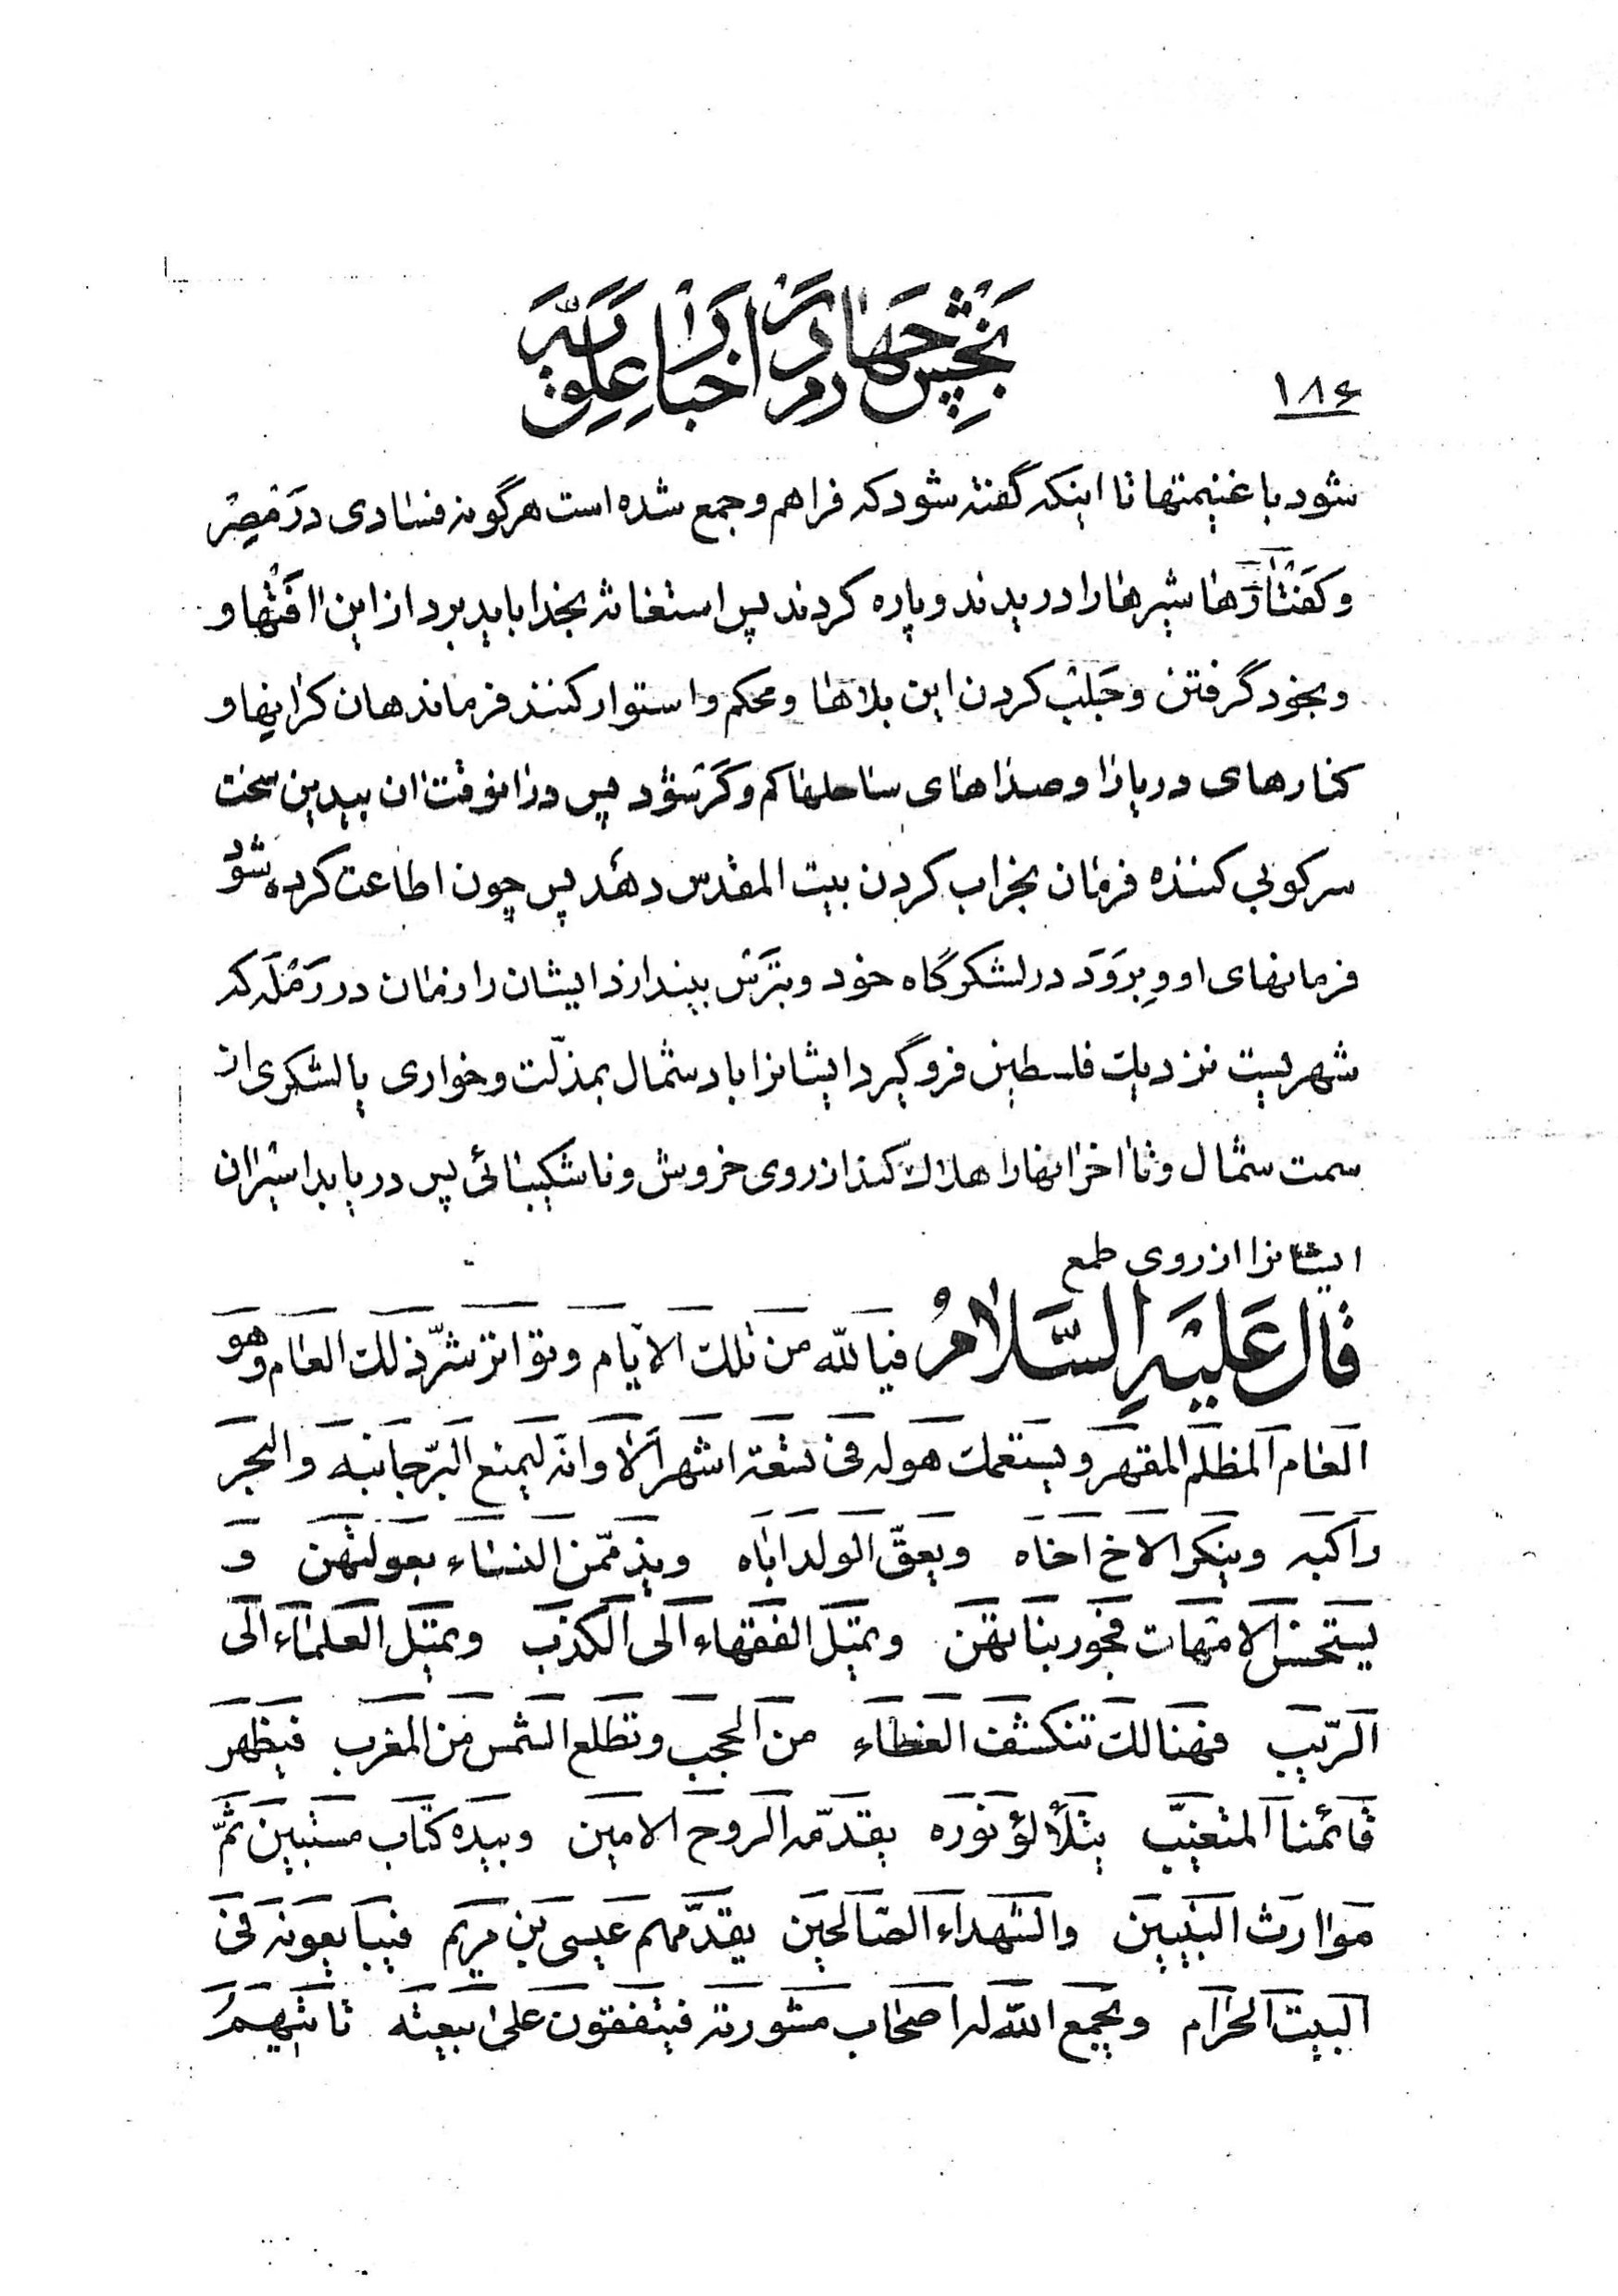 بخش چهارم در اخبار علویّه
۱۸۶
شود با غنیمتها تا اینکه گفته شود که فراهم و جمع شده است هرگونه فسادی در مِصر
و کَفتارها شیرها را دریدند و پاره کردند پس استغاثه بخدا باید برد از این افتها و
و بخود گرفتن و جَلب کردن این بلاها و محکم و استوار کنند فرماندهان کرانها و
کنارهای دریا را و صداهای ساحلها کم و گر شود پس در انوقت ان بیدین سخت
سرکوبی کننده فرمان بخراب کردن بیت المقدس دهد پس چون اطاعت کرده شود
فرمانهای او و بِرَوَد در لشکرگاه خود و بترس بیندازد ایشان را زمان در رَمْلَه که
شهریست نزدیک فلسطین فروگیرد ایشانرا باد شمال بمذلّت و خواری یا لشکری از
سمت شمال و تا اخر انها را هلاک کند از روی خروش و ناشکیبائی پس دریابد اسیران
ایشانرا از روی طمع
قال عَلَیْهِ السَّلامُ فیا لله من تلک الایام و تواتر شرّ ذلک العام و هو
العام المظلم المقهر و یستعمک هوله فی تسعة اشهر الا و انه لیمنع البرّ جانبه و البحر
راکبه و ینکر الاخ اخاه و یعقّ الولد اباه و یذممّن النساء بعولتهن و
یستحسن الامّهات فجور بناتهن و تمیل الفقهاء الی الکذب و تمیل العلماء الی
الرّیب فهنالک تنکشف الغطاء من الحجب و تطلع الشمس من المغرب فیظهر
قائمنا المتغیّب یتلألؤ نوره یقدّمه الروح الامین و بیده کتاب مستبین ثمّ
مواارث النبیین و الشهداء الصالحین یقدّمهم عیسی بن مریم فیبایعونه فی
البیت الحرام و یجمع الله له اصحاب مشورته فیتفقون علی بیعته تاتیهم